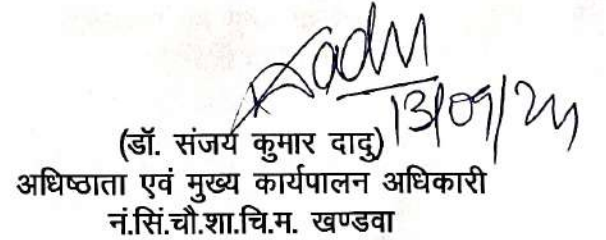 Dadu
13/09/24
(डॉ. संजय कुमार दादु)
अधिष्ठाता एवं मुख्य कार्यपालन अधिकारी
नं.सिं.चौ.शा.चि.म. खण्डवा